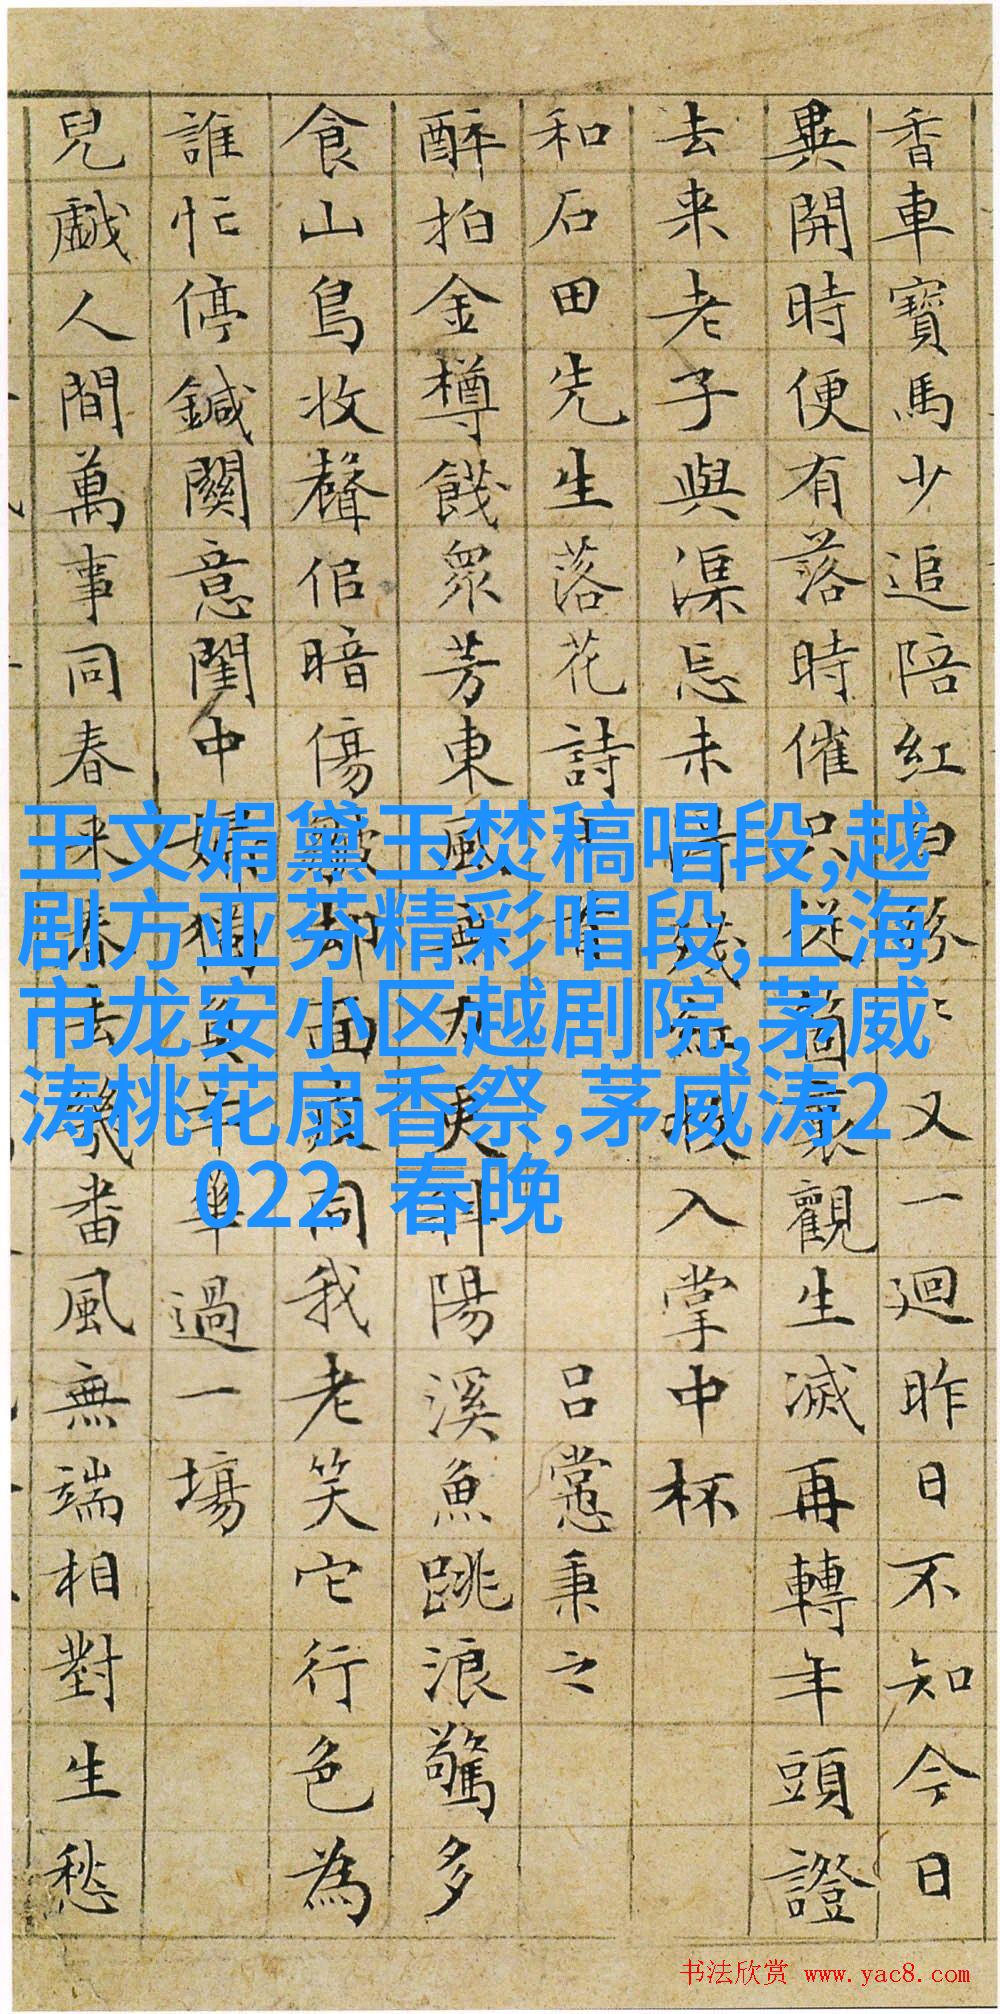 香車寶馬少追陪紅白紛〻又一迴昨日不知今日
異開時便有落時催只從箇裏觀生滅再轉年頭證
去来老子與渠忘未殘紅收入掌中杯
和石田先生落花詩十首 呂㦂秉之
醉拍金樽餞衆芳東風無力斜陽溪魚跳浪驚多
食山鳥收聲倍暗傷却面同我老笑它行色為
誰忙停鍼關意閨中婦獨負年華過一場
兒戯人間萬事同春来春去幾番風無端相對生愁
王文娟黛玉焚稿唱段,越
剧方亚芬精彩唱段,上海
市龙安小区越剧院,茅威
涛桃花扇香祭,茅威涛2
022 春晚
书法欣赏 www.yac8.com